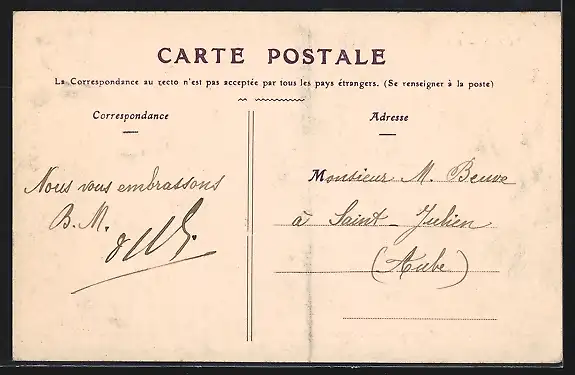 CARTE POSTALE
La Correspondance au recto n'est pas acceptée par tous les pays étrangers. (Se renseigner à la poste)
Correspondance
Nous vous embrassons
B. M.
Adresse
Monsieur M. Beuve
à Saint-Julien
(Aube)